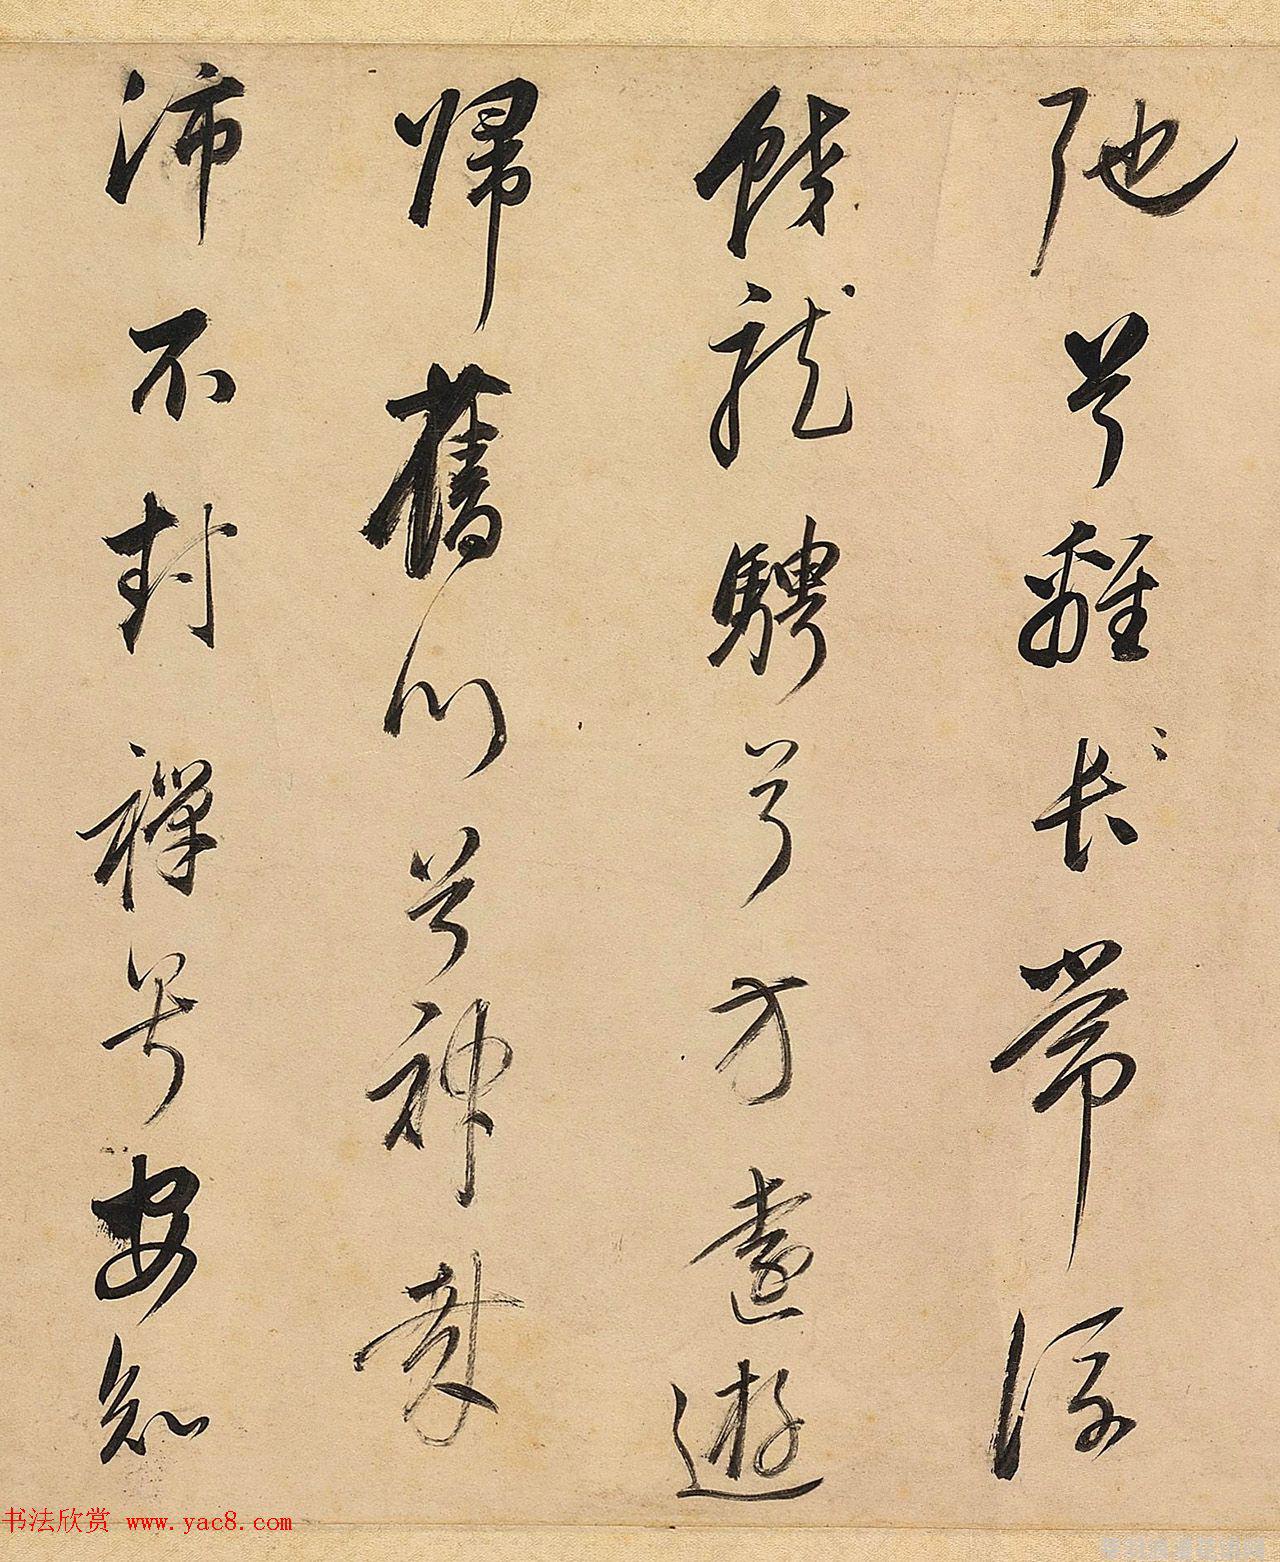 弛兮離長常流
蛟龍騁兮方遠遊
歸舊川兮神哉
沛不封禪兮安知
书法欣赏 www.yac8.com